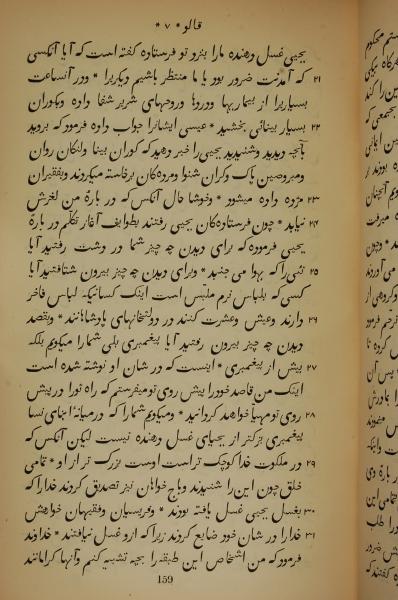 قالو * ۷ *
یحیی غسل دهنده مارا بنزد تو فرستاده گفته است که آیا آنکسی
۲۱ که آمدنت ضرور بود یا ما منتظر باشیم دیگریرا * ودر آنساعت
بسیاریرا از بیماریها ودردها وروحهای شریر شفا داده وبکوران
۲۲ بسیار بینائی بخشید * عیسی ایشانرا جواب داده فرمود که بروید
بآنچه دیدید وشنیدید یحیی را خبر دهید که کوران بینا ولنکان روان
ومبروصین پاک وکران شنوا ومرده‌کان برخاسته میکردند وبفقیران
۲۳ مژده داده میشود * وخوشا حال آنکس که در بارهٔ من لغزش
۲۴ نیابد * چون فرستاده‌کان یحیی رفتند بطوایف آغاز تکلم در بارهٔ
یحیی فرموده که برای دیدن چه چیز شما در دشت رفتید آیا
۲۵ نئی را که بهوا می جنبد * وبرای دیدن چه چیز بیرون شتافتید آیا
کسی که بلباس نرم ملبس است اینک کسانیکه لباس فاخر
۲۶ دارند وعیش وعشرت کنند در دولتخانهای پادشاهانند * وبقصد
دیدن چه چیز بیرون رفتید آیا پیغمبری بلی شما را میکویم بلکه
۲۷ بیش از پیغمبری * اینست که در شان او نوشته شده است
اینک من قاصد خودرا پیش روی تو میفرستم که راه تورا در پیش
۲۸ روی تو مهیا خواهد کردانید * ومیکویم شما را که درمیانهٔ ابنای نسا
پیغمبری بزرکتر از یحیای غسل دهنده نیست لیکن آنکس که
۲۹ در ملکوت خدا کوچک تر است اوست بزرک تر از او * تمامی
خلق چون این را شنیدند وباج خواهان نیز تصدیق کردند خدا را که
۳۰ بغسل یحیی غسل یافته بودند * وفریسیان وفقیهان خواهش
۳۱ خدا را در شان خود ضایع کردند زیرا که از او غسل نیافتند * خداوند
فرمود که من اشخاص این طبقه را بچه تشبیه کنم وآنها کرا مانند
159